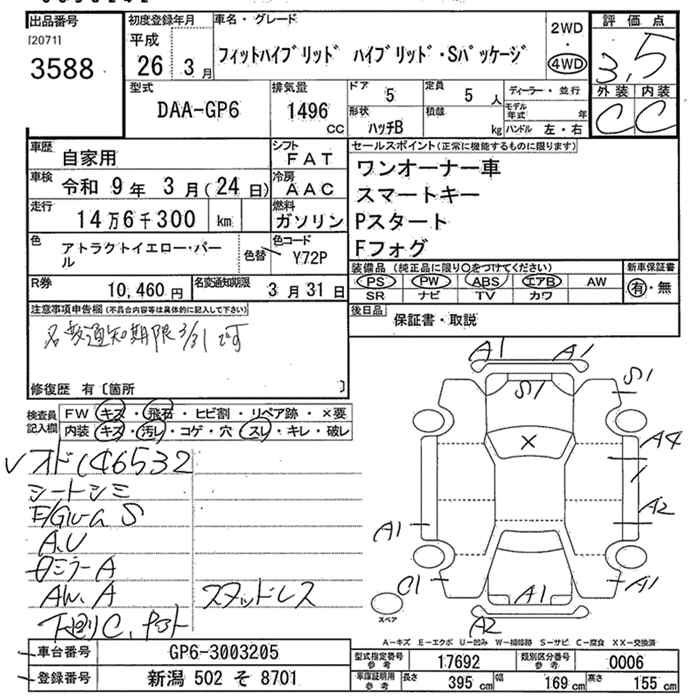 出品番号
[2071]
3588
初度登録年月
平成
26 3月
車名・グレード
フィットハイブリッド ハイブリッド・Sパッケージ
2WD
・
4WD
評価点
3.5
外装 内装
C C
型式
DAA-GP6
排気量
1496
CC
ドア
5
定員
5 人
形状
ハッチB
積載
kg
ディーラー・並行
モデル年式 年
ハンドル 左・右
車歴 自家用
シフト
FAT
車検 令和 9年 3月(24日)
冷房
AAC
走行 14万6千300 km
燃料
ガソリン
色 アトラクトイエロー・パール
色替
色コード
Y72P
R券 10,460円
名変通知期限 3月31日
セールスポイント(正常に機能するものに限ります)
ワンオーナー車
スマートキー
Pスタート
Fフォグ
装備品(純正品に限り○をつけてください)
PS PW ABS エアB AW
SR ナビ TV カワ
新車保証書
有・無
後日品 保証書・取説
注意事項申告欄(不具合内容等は具体的に記入して下さい)
名変通知期限3/31です
修復歴 有〔箇所 〕
検査員記入欄
FW キズ・飛石・ヒビ割・リペア跡・×要
内装 キズ・汚レ・コゲ・穴・スレ・キレ・破レ
オド146532
シートシミ
A.U
ミラーA
AW.A
スタッドレス
下廻りC,
A1 A1
S1 S1
×
A4
A2
A1
C1 A1 A1
A2
スペア
A-キズ E-エクボ U-凹み W-補修跡 S-サビ C-腐食 XX-交換済
車台番号 GP6-3003205
登録番号 新潟 502 そ 8701
型式指定番号 参考 17692
類別区分番号 参考 0006
車庫証明用 参考 長さ 395 cm 幅 169 cm 高さ 155 cm